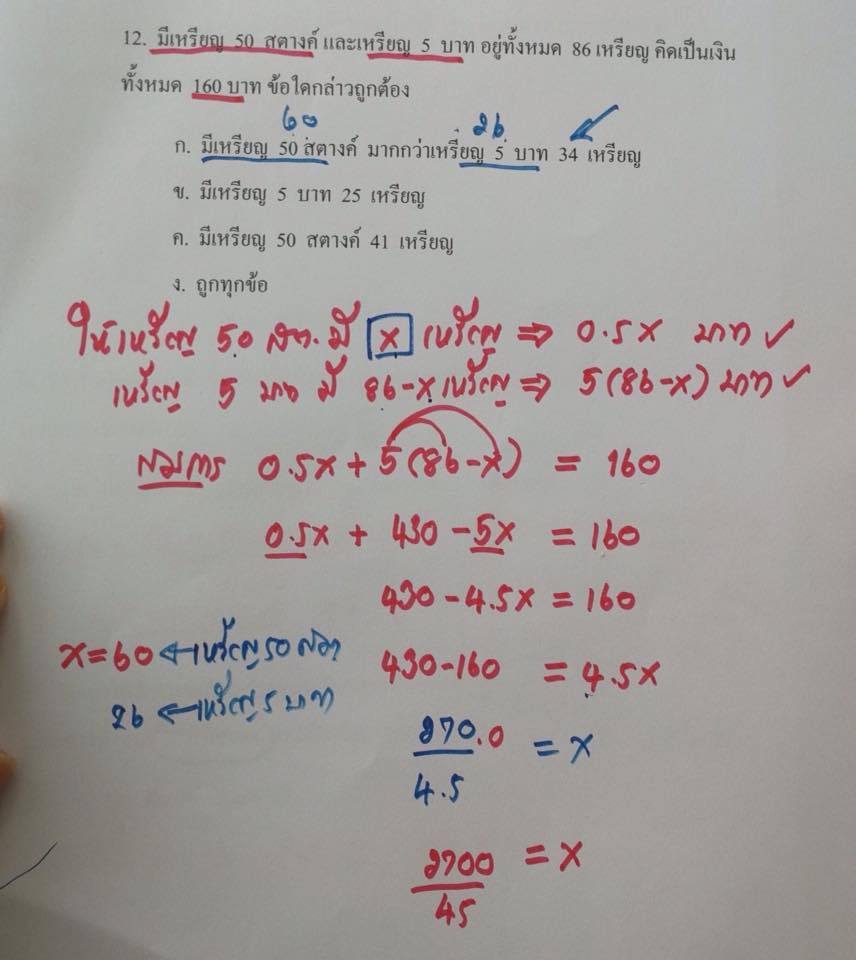 12. มีเหรียญ 50 สตางค์ และเหรียญ 5 บาท อยู่ทั้งหมด 86 เหรียญ คิดเป็นเงิน
ทั้งหมด 160 บาท ข้อใดกล่าวถูกต้อง
60 26
ก. มีเหรียญ 50 สตางค์ มากกว่าเหรียญ 5 บาท 34 เหรียญ
ข. มีเหรียญ 5 บาท 25 เหรียญ
ค. มีเหรียญ 50 สตางค์ 41 เหรียญ
ง. ถูกทุกข้อ
ให้เหรียญ 50 สต. มี x เหรียญ ⇒ 0.5x บาท ✓
เหรียญ 5 บาท มี 86-x เหรียญ ⇒ 5(86-x) บาท ✓
สมการ 0.5x + 5(86-x) = 160
0.5x + 430 - 5x = 160
430 - 4.5x = 160
x = 60 ← เหรียญ 50 สต. 430-160 = 4.5x
26 ← เหรียญ 5 บาท
270.0 = x
4.5
2700 = x
45